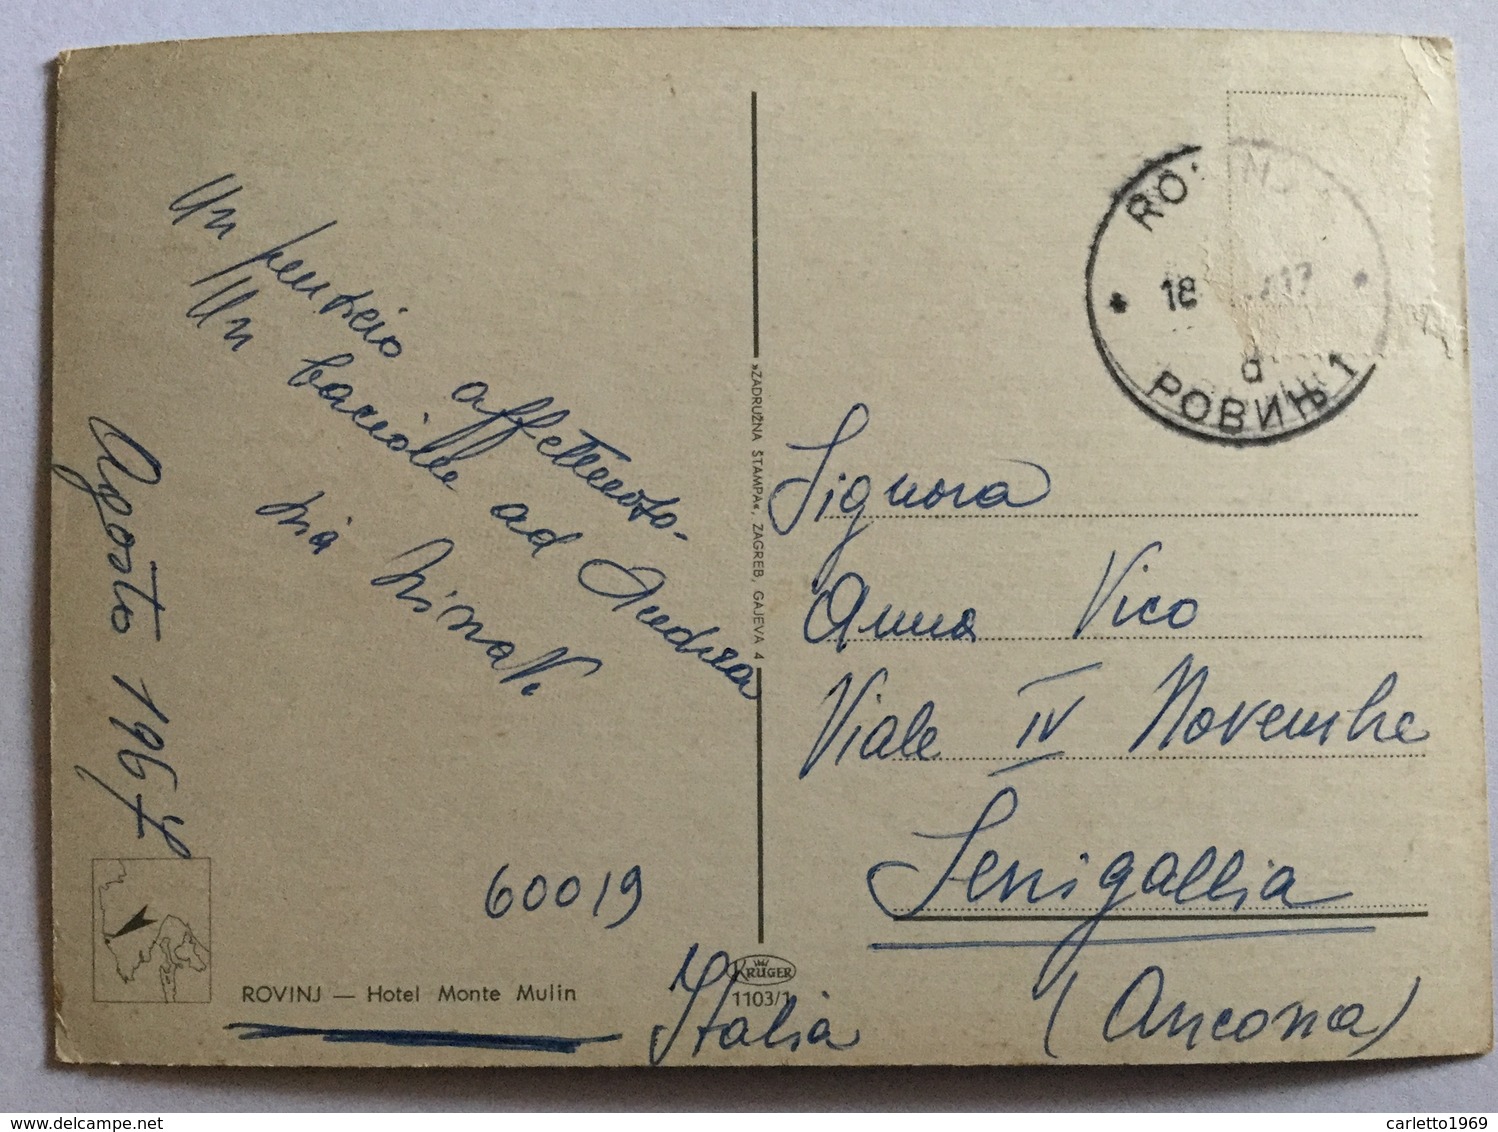 Un pensiero affettuoso.
Un baciòtto ad Andrea
Agosto 1967
60019
ROVINJ — Hotel Monte Mulin
»ZADRUŽNA ŠTAMPA«, ZAGREB, GAJEVA 4
KRÜGER
1103/1
ROVINJ
18
РОВИЊ 1
Signora
Anna Vico
Viale IV Novembre
Senigallia
(Ancona)
Italia
carletto1969